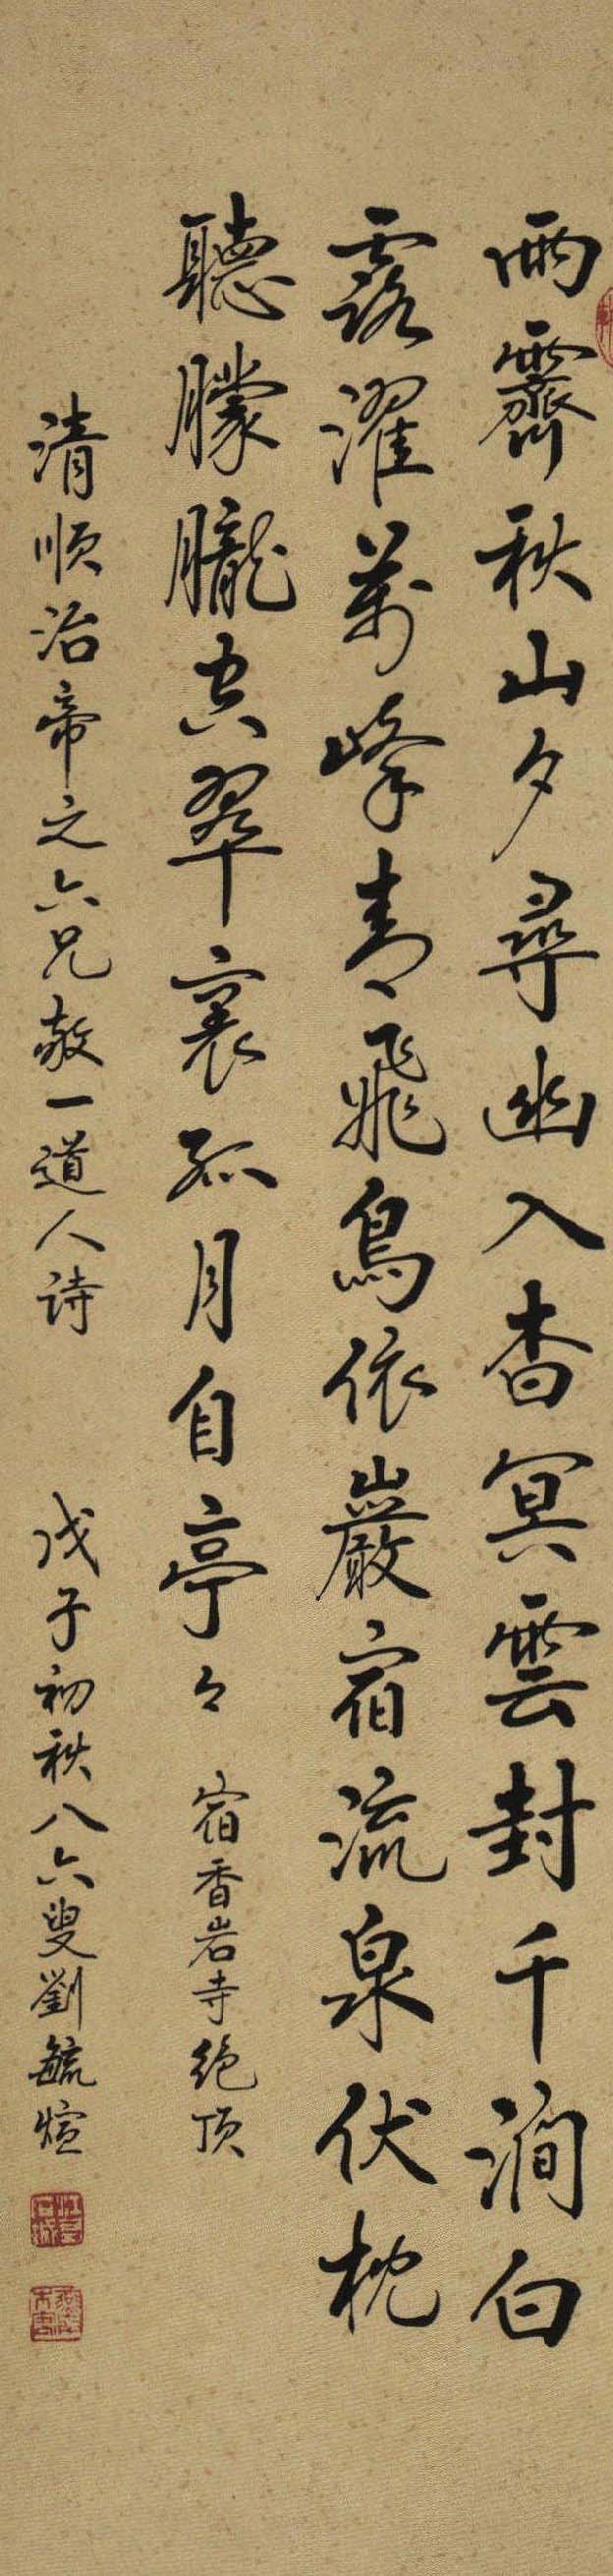 雨霽秋山夕尋幽入杳冥雲封千澗白
露濯萬峰青飛鳥依巖宿流泉伏枕
聽朦朧空翠裏孤月自亭々 宿香岩寺绝顶
清顺治帝之六兄敬一道人诗 戊子初秋八六叟劉毓煊